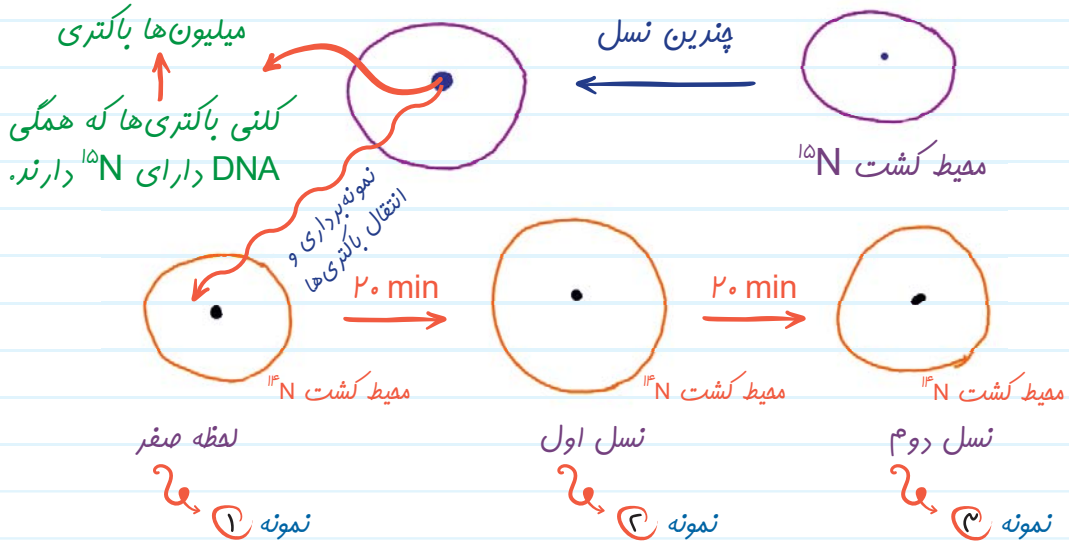 میلیون‌ها باکتری
چندین نسل
کلنی باکتری‌ها که همگی
DNA دارای ¹⁵N دارند.
محیط کشت ¹⁵N
نمونه‌برداری و
انتقال باکتری‌ها
۲۰ min
۲۰ min
محیط کشت ¹⁴N
محیط کشت ¹⁴N
محیط کشت ¹⁴N
لحظه صفر
نسل اول
نسل دوم
نمونه ۱
نمونه ۲
نمونه ۳